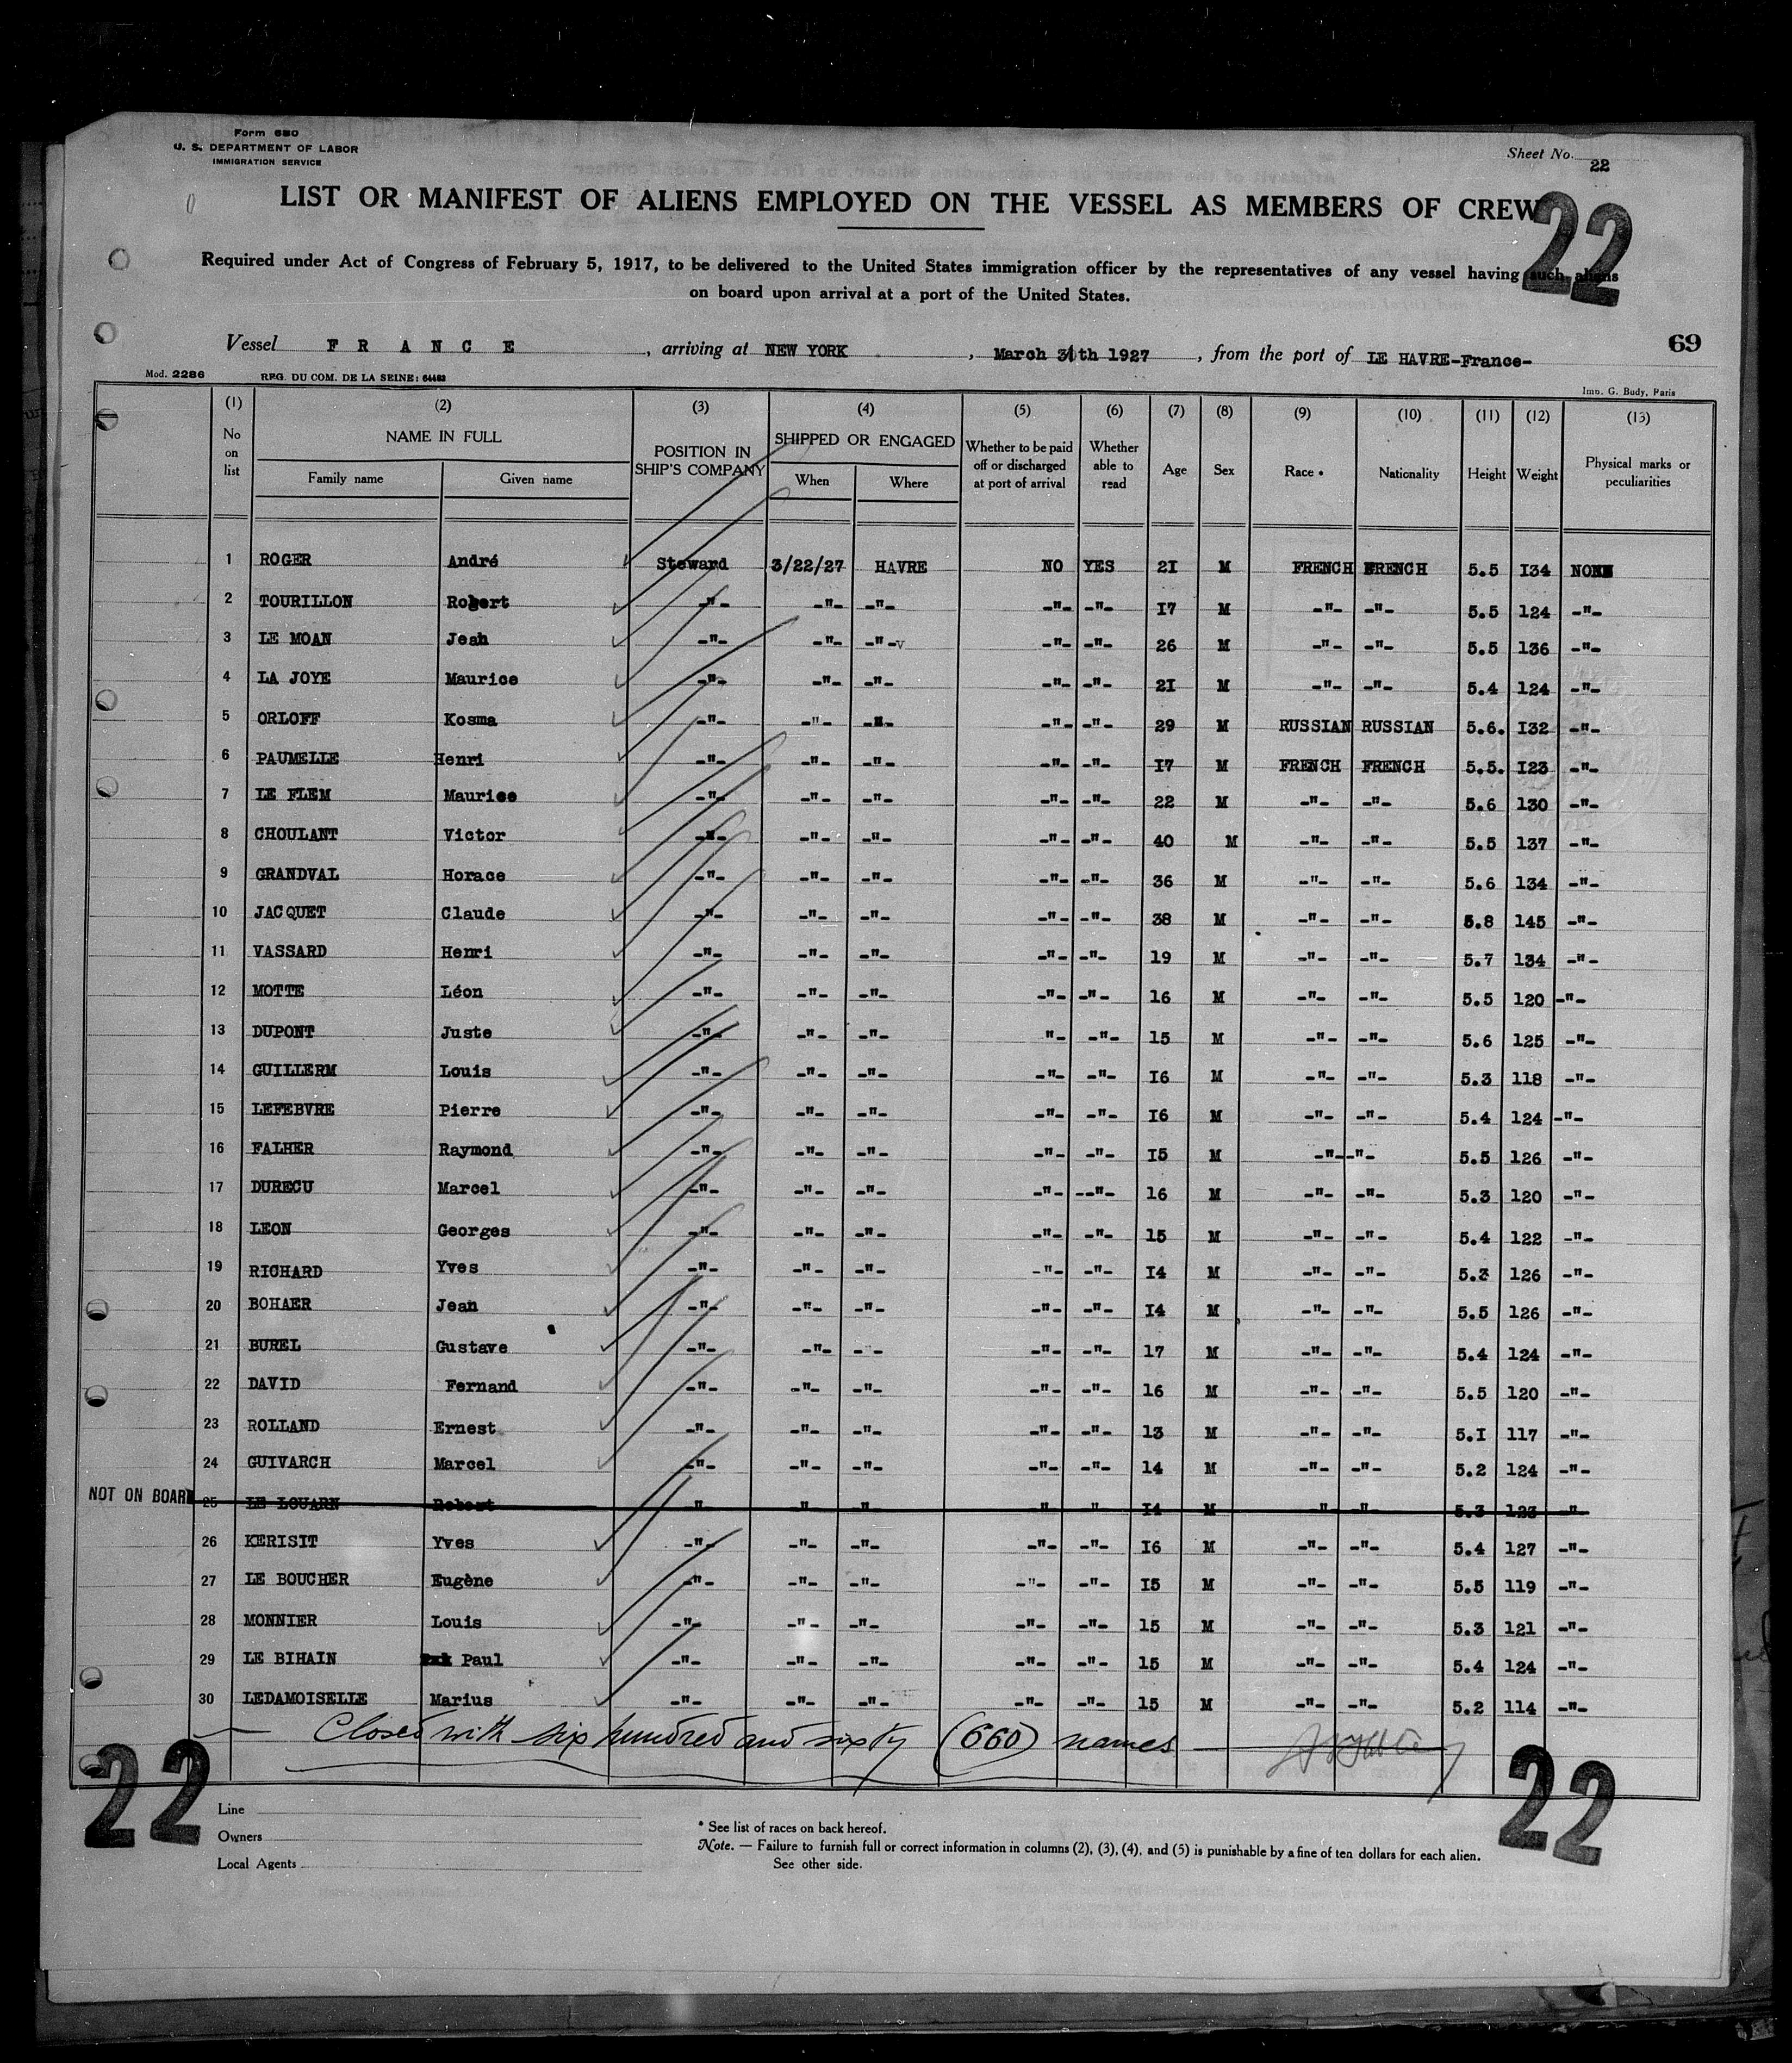 Form 680
U. S. DEPARTMENT OF LABOR
IMMIGRATION SERVICE
Sheet No. 22
LIST OR MANIFEST OF ALIENS EMPLOYED ON THE VESSEL AS MEMBERS OF CREW
22
Required under Act of Congress of February 5, 1917, to be delivered to the United States immigration officer by the representatives of any vessel having such aliens
on board upon arrival at a port of the United States.
69
Vessel FRANCE, arriving at NEW YORK, March 31th 1927, from the port of LE HAVRE-France-
Mod. 2286 REG. DU COM. DE LA SEINE: 64483 Imp. G. Budy, Paris
(1) (2) (3) (4) (5) (6) (7) (8) (9) (10) (11) (12) (13)
No on list NAME IN FULL Family name Given name POSITION IN SHIP'S COMPANY SHIPPED OR ENGAGED When Where Whether to be paid off or discharged at port of arrival Whether able to read Age Sex Race * Nationality Height Weight Physical marks or peculiarities
1 ROGER André Steward 3/22/27 HAVRE NO YES 21 M FRENCH FRENCH 5.5 134 NONE
2 TOURILLON Robert -"- -"- -"- -"- -"- 17 M -"- -"- 5.5 124 -"-
3 LE MOAN Jean -"- -"- -"- -"- -"- 26 M -"- -"- 5.5 136 -"-
4 LA JOYE Maurice -"- -"- -"- -"- -"- 21 M -"- -"- 5.4 124 -"-
5 ORLOFF Kosma -"- -"- -"- -"- -"- 29 M RUSSIAN RUSSIAN 5.6. 132 -"-
6 PAUMELLE Henri -"- -"- -"- -"- -"- 17 M FRENCH FRENCH 5.5. 123 -"-
7 LE FLEM Maurice -"- -"- -"- -"- -"- 22 M -"- -"- 5.6 130 -"-
8 CHOULANT Victor -"- -"- -"- -"- -"- 40 M -"- -"- 5.5 137 -"-
9 GRANDVAL Horace -"- -"- -"- -"- -"- 36 M -"- -"- 5.6 134 -"-
10 JACQUET Claude -"- -"- -"- -"- -"- 38 M -"- -"- 5.8 145 -"-
11 VASSARD Henri -"- -"- -"- -"- -"- 19 M -"- -"- 5.7 134 -"-
12 MOTTE Léon -"- -"- -"- -"- -"- 16 M -"- -"- 5.5 120 -"-
13 DUPONT Juste -"- -"- -"- "- -"- 15 M -"- -"- 5.6 125 -"-
14 GUILLERM Louis -"- -"- -"- -"- -"- 16 M -"- -"- 5.3 118 -"-
15 LEFEBVRE Pierre -"- -"- -"- -"- -"- 16 M -"- -"- 5.4 124 -"-
16 FALHER Raymond -"- -"- -"- -"- -"- 15 M -"- -"- 5.5 126 -"-
17 DURECU Marcel -"- -"- -"- -"- --"- 16 M -"- -"- 5.3 120 -"-
18 LEON Georges -"- -"- -"- -"- -"- 15 M -"- -"- 5.4 122 -"-
19 RICHARD Yves -"- -"- -"- -"- -"- 14 M -"- -"- 5.3 126 -"-
20 BOHAER Jean -"- -"- -"- -"- -"- 14 M -"- -"- 5.5 126 -"-
21 BUREL Gustave -"- -"- -"- -"- -"- 17 M -"- -"- 5.4 124 -"-
22 DAVID Fernand -"- -"- -"- -"- -"- 16 M -"- -"- 5.5 120 -"-
23 ROLLAND Ernest -"- -"- -"- -"- -"- 13 M -"- -"- 5.1 117 -"-
24 GUIVARCH Marcel -"- -"- -"- -"- -"- 14 M -"- -"- 5.2 124 -"-
NOT ON BOARD 25 LE LOUARN Robert " " " " " 14 M " " 5.3 123 "
26 KERISIT Yves -"- -"- -"- -"- -"- 16 M -"- -"- 5.4 127 -"-
27 LE BOUCHER Eugène -"- -"- -"- -"- -"- 15 M -"- -"- 5.5 119 -"-
28 MONNIER Louis -"- -"- -"- -"- -"- 15 M -"- -"- 5.3 121 -"-
29 LE BIHAIN Paul -"- -"- -"- -"- -"- 15 M -"- -"- 5.4 124 -"-
30 LEDAMOISELLE Marius -"- -"- -"- -"- -"- 15 M -"- -"- 5.2 114 -"-
Closed with six hundred and sixty (660) names
22 22
Line
Owners
Local Agents
* See list of races on back hereof.
Note. — Failure to furnish full or correct information in columns (2), (3), (4), and (5) is punishable by a fine of ten dollars for each alien.
See other side.